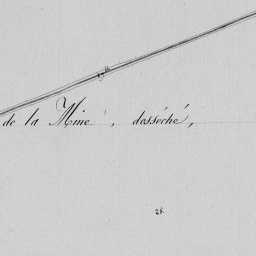 de la Mine, desséché,
28